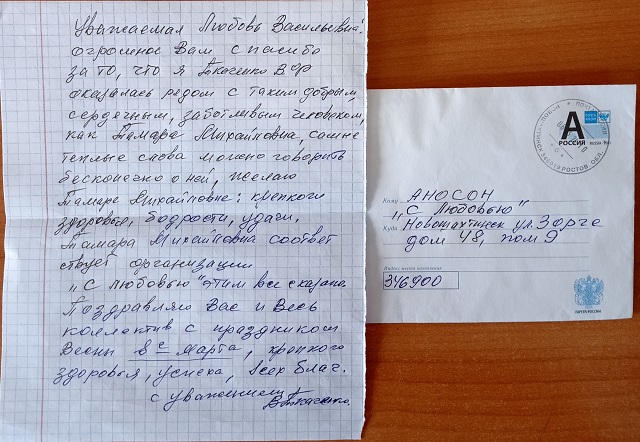 Уважаемая Любовь Васильевна!
огромное Вам спасибо
за то, что я Ткаченко ВФ
оказалась рядом с таким добрым,
сердечным, заботливым человеком,
как Тамара Михайловна, самые
теплые слова можно говорить
бесконечно о ней, желаю
Тамаре Михайловне: крепкого
здоровья, бодрости, удачи.
Тамара Михайловна соответ
ствует организации
„С любовью" этим все сказано.
Поздравляю Вас и Весь
коллектив с праздником
Весны 8е Марта, крепкого
здоровья, успеха, всех благ.
с уважением
В.Ткаченко.
А
РОССИЯ
RUSSIA
РОСТОВ ОБЛ
Кому АНОСОН
„С Любовью"
Куда Новошахтинск ул. Зорге
дом 48, пом 9
Индекс места назначения
346900
ПОЧТА РОССИИ